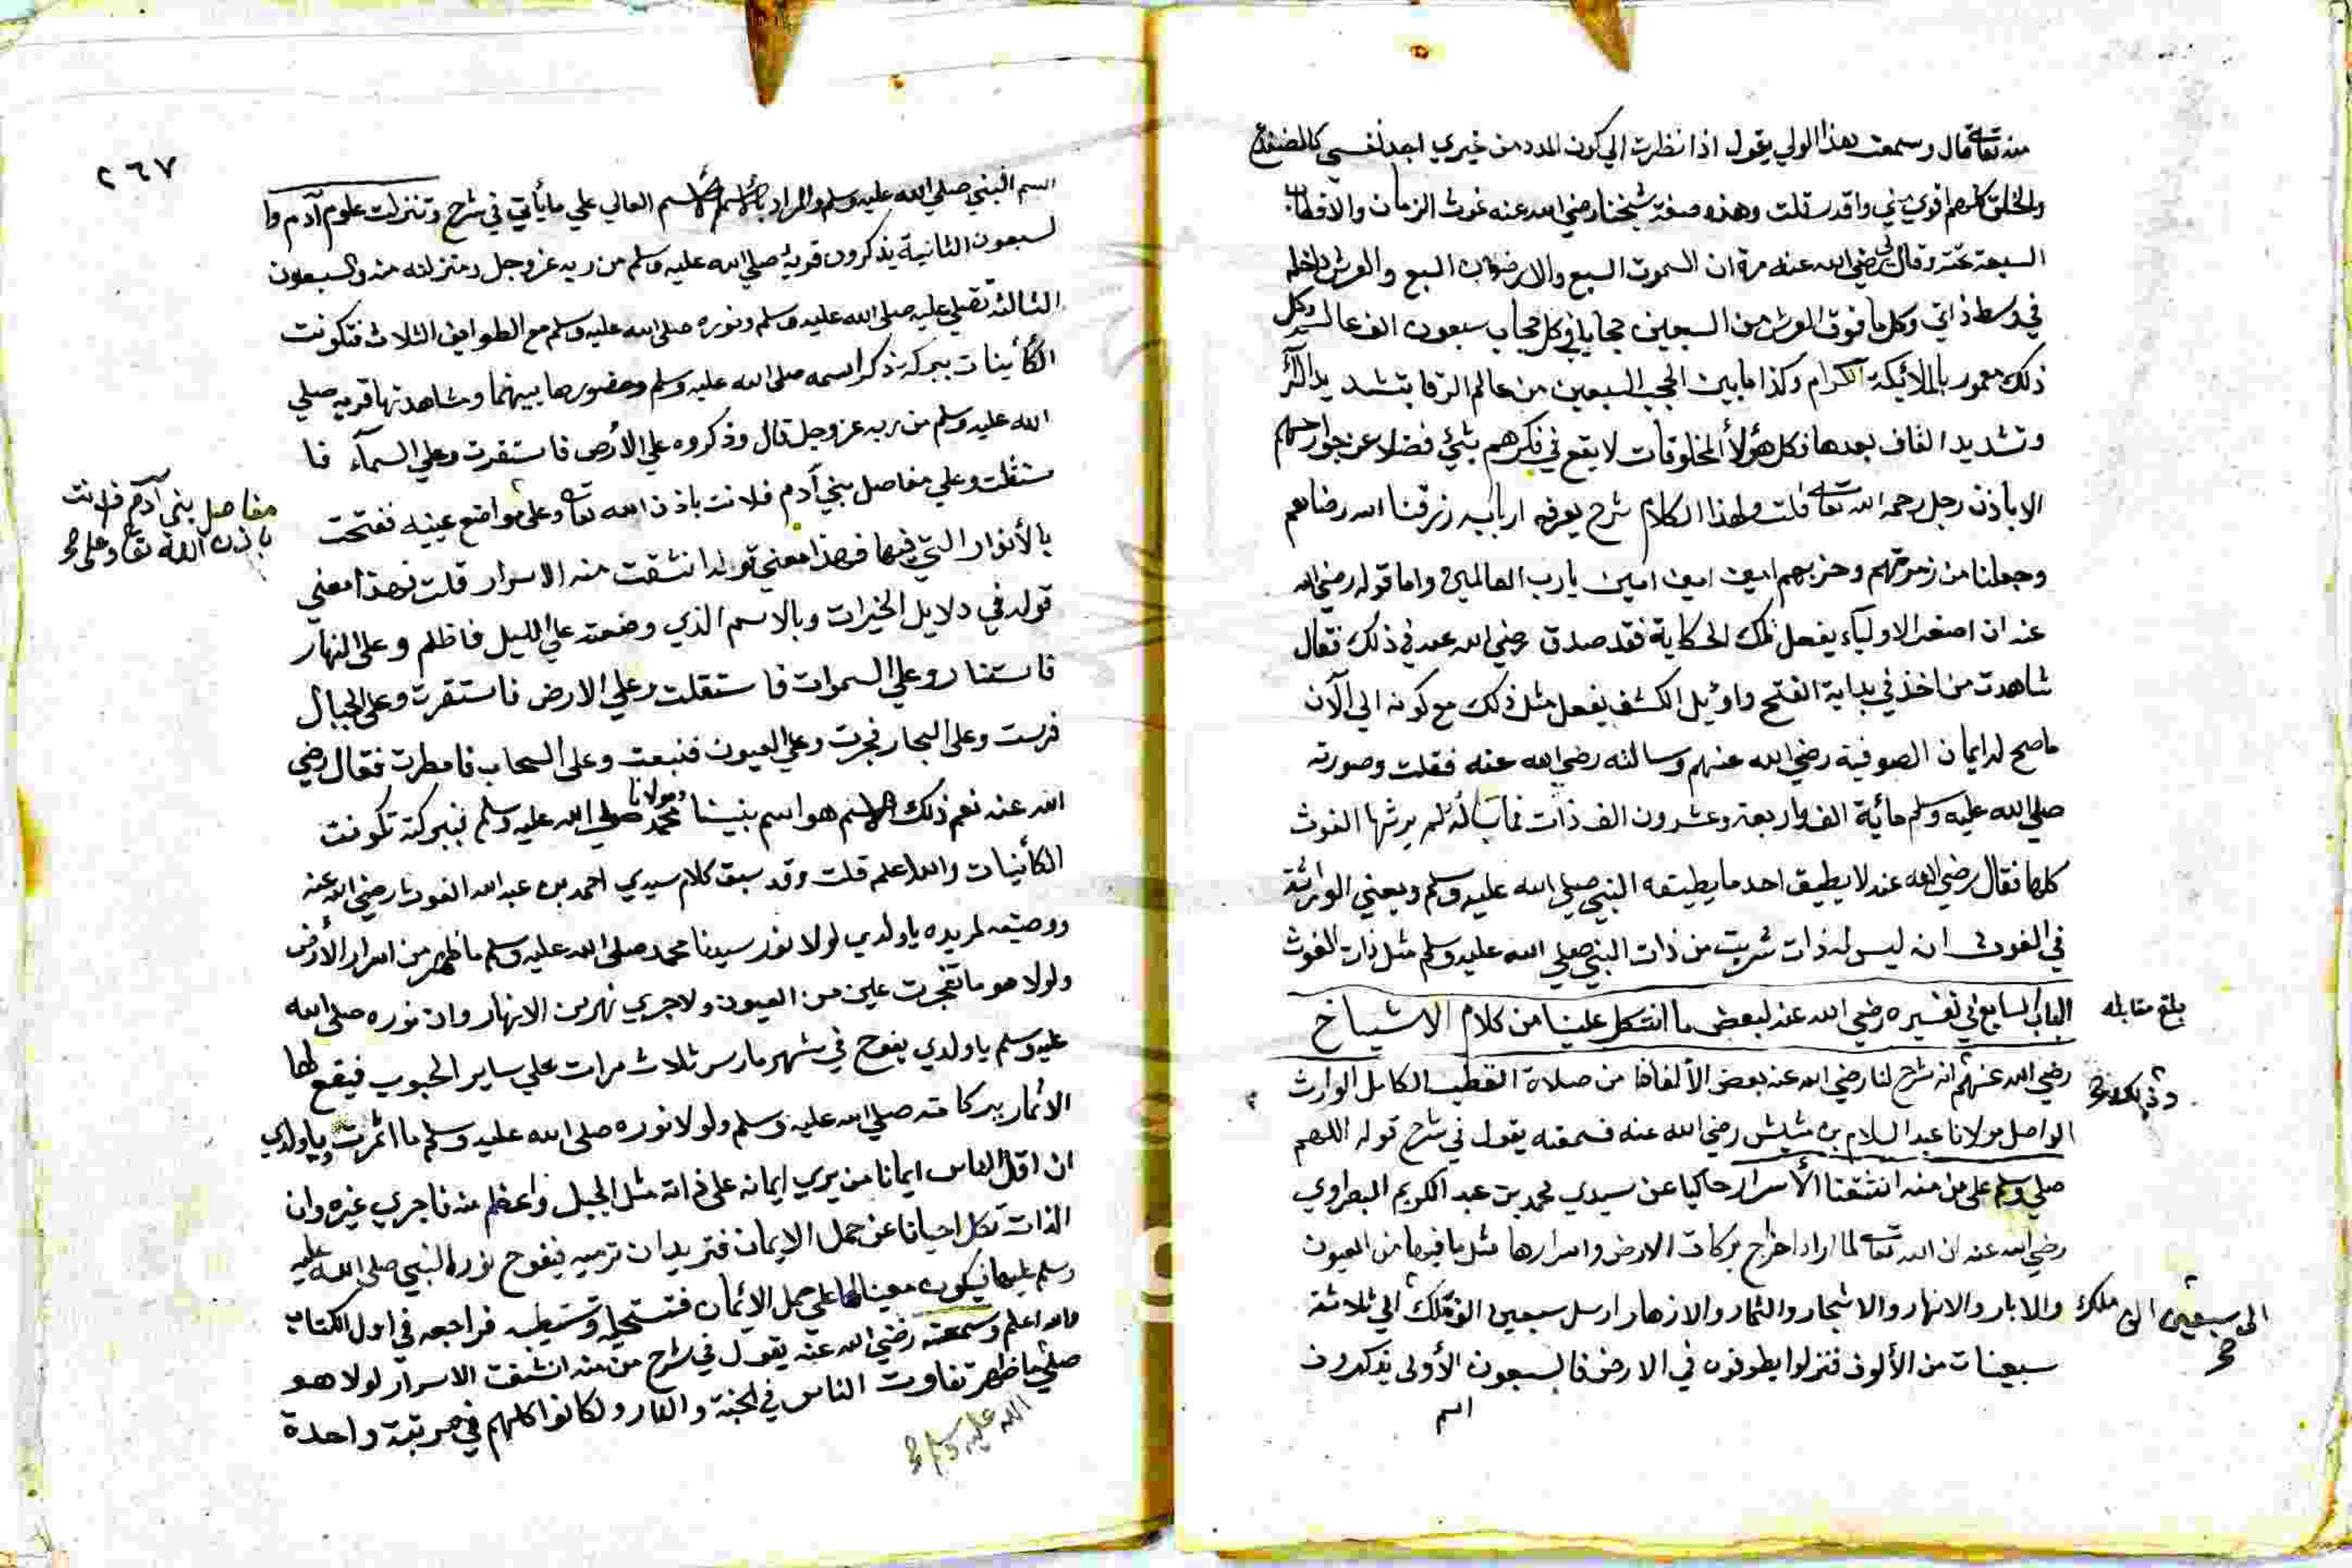 منه تعالى قال وسمعت هذا الولي يقول اذا نظرت الي كون المدد من غيري اجد نفسي كالضفدع
والخلق كلهم اقوي مني واقدر قلت وهذه صفة شيخنا رضي الله عنه غوث الزمان والاقطاب
السبعة تحته وقال لي رضي الله عنه مرة ان السموت السبع والارضون السبع والعرش داخلة
في وسط ذاتي وكل ما فوق العرش من السبعين حجابا في كل حجاب سبعون الف عالم وكل
ذلك معمور بالملائيكة الكرام وكذا ما بين الحجب السبعين من عالم الرقا بتشديد الرا
وتشديد القاف بعدها فكل هؤلاء المخلوقات لا يقع في فكرهم شئ فضلا عن جوارحهم
الا باذن رجل رحمه الله تعالى قلت ولهذا الكلام شرح يعرفه اربابه رزقنا الله رضاهم
وجعلنا من زمرتهم وحزبهم امين امين امين يارب العالمين واما قوله رضي الله
عنه ان اصغر الاولياء يفعل تلك الحكاية فقد صدق رضي الله عنه في ذلك فقال
شاهدت من اخذ في بداية الفتح واوئيل الكشف يفعل مثل ذلك مع كونه الي الآن
ما صح له ايمان الصوفية رضي الله عنهم وسالته رضي الله عنه فقلت وصورته
صلي الله عليه وسلم مائية الف واربعة وعشرون الف ذات فما باله لم يرثها الغوث
كلها فقال رضي الله عنه لا يطيق احد ما يطيقه النبي صلي الله عليه وسلم ويعني الوراثة
في الغوث انه ليس له ذات شربت من ذات النبي صلي الله عليه وسلم مثل ذات الغوث
الباب السابع في تفسيره رضي الله عنه لبعض ما اشكل علينا من كلام الاشياخ
بلغ مقابله
رضي الله عنهم انه شرح لنا رضي الله عنه بعض الألفاظ من صلاة القطب الكامل الوارث
الواصل مولانا عبد السلام بن مشيش رضي الله عنه فسمعته يقول في شرح قوله اللهم
صلي وسلم على من منه انشقت الأسرار حاكيا عن سيدي محمد بن عبد الكريم البصراوي
رضي الله عنه ان الله تعالى لما اراد اخراج بركات الارض واسرارها مثل ما فيها من العيون
والابار والانهار والاشجار والثمار والازهار ارسل سبعين الف ملك الي ثلاثة
الى سبعين الى ملك صح
سبعينات من الألوف فنزلوا يطوفون في الارض فالسبعون الأولى يذكرون
اسم
٢٦٧
اسم النبي صلي الله عليه وسلم والمراد بالاسم الاسم العالي علي ما يأتي في شرح وتنزلت علوم آدم وا
لسبعون الثانية يذكرون قربه صلي الله عليه وسلم من ربه عز وجل ومنزلته منه والسبعون
الثالثة تصلي عليه صلي الله عليه وسلم ونوره صلي الله عليه وسلم مع الطوايف الثلاث فتكونت
الكأينات ببركة ذكر اسمه صلى الله عليه وسلم وحضورها بينهما ومشاهدتها قربه صلي
الله عليه وسلم من ربه عز وجل قال وذكروه علي الأرض فاستقرت وعلي السمآء فا
ستقلت وعلي مفاصل بني آدم فلانت باذن الله تعالى وعلى مواضع عينيه ففتحت
مفاصل بني آدم فلانت
باذن الله تعالى وعلى صح
بالأنوار التي فيها فهذا معني قوله انشقت منه الاسرار قلت فهذا معني
قوله في دلايل الخيرات وبالاسم الذي وضعته علي الليل فاظلم وعلى النهار
فاستنار وعلي السموات فاستقلت وعلي الارض فاستقرت وعلى الجبال
فرست وعلى البحار فجرت وعلي العيون فنبعت وعلى السحاب فامطرت فقال رضي
الله عنه نعم ذلك الاسم هو اسم نبينا ومولانا محمد صلي الله عليه وسلم فببركته تكونت
الكأينات والله اعلم قلت وقد سبق كلام سيدي احمد بن عبد الله الغوث رضي الله عنه
ووصيته لمريده ياولدي لولا نور سيدنا محمد صلى الله عليه وسلم ما ظهر من اسرار الأرض
ولولا هو ما تفجرت عين من العيون ولا جري نهر من الانهار وان نوره صلى الله
عليه وسلم ياولدي يفوح في شهر مارس ثلاث مرات علي ساير الحبوب فيقع لها
الاثمار ببركاته صلي الله عليه وسلم ولولا نوره صلى الله عليه وسلم ما اثمرت وياولدي
ان اقل الناس ايمانا من يري ايمانه على ذاته مثل الجبل واعظم منه فاحري غيره وان
الذات تكل احيانا عن حمل الايمان فتريد ان ترميه فيفوح نور النبي صلى الله عليه
وسلم عليها فيكون معينا لها علي حمل الايمان فتستحليه وتستطيبه فراجعه في اول الكتاب
والله اعلم وسمعته رضي الله عنه يقول في شرح من منه انشقت الاسرار لولا هو
صلي ما ظهر تفاوت الناس في الجنة والنار ولكانوا كلهم في مرتبة واحدة
الله عليه وسلم صح